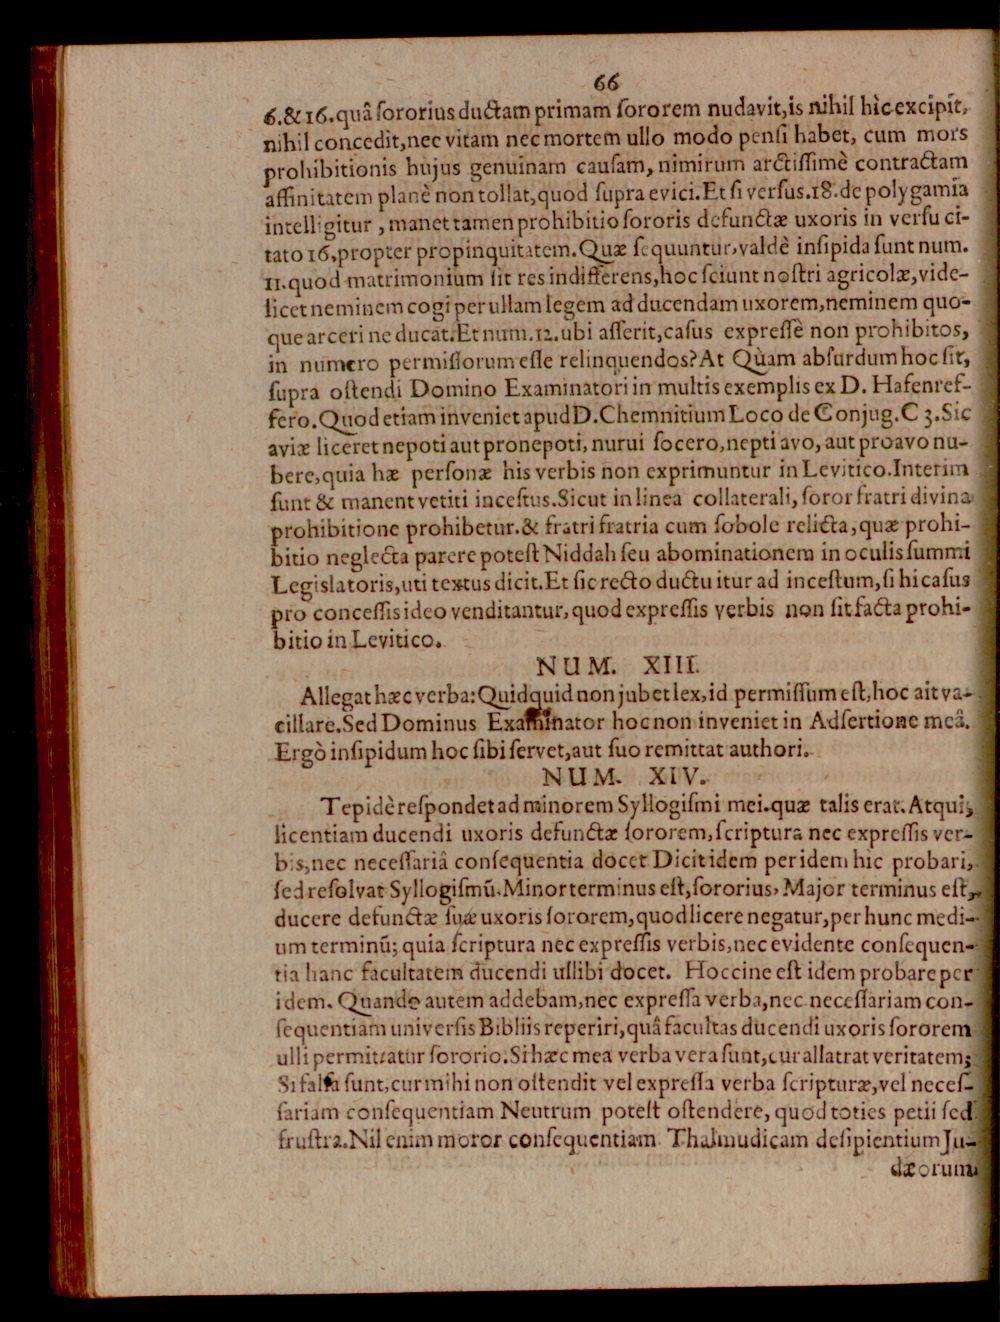 66
6.&16.quâ ſororius ductam primam ſororem nudavit,is nihil hìc excipit,
nihil concedit,nec vitam nec mortem ullo modo penſi habet, cum mors
prohibitionis hujus genuinam cauſam, nimirum arctiſſimè contractam
affinitatem planè non tollat,quod ſupra evici.Et ſi verſus.18.de polygamia
intelligitur , manet tamen prohibitio ſororis defunctæ uxoris in verſu ci-
tato 16,propter propinquitatem.Quæ ſequuntur,valdè inſipida ſunt num.
11.quod matrimonium ſit res indifferens,hoc ſciunt noſtri agricolæ,vide-
licet neminem cogi per ullam legem ad ducendam uxorem,neminem quo-
que arceri ne ducat.Et num.12.ubi aſſerit,caſus expreſſè non prohibitos,
in numero permiſſorum eſſe relinquendos?At Qùam abſurdum hoc ſit,
ſupra oſtendi Domino Examinatori in multis exemplis ex D. Hafenref-
fero.Quod etiam inveniet apud D.Chemnitium Loco de Conjug.C 3.Sic
aviæ liceret nepoti aut pronepoti, nurui ſocero,nepti avo, aut proavo nu-
bere,quia hæ perſonæ his verbis non exprimuntur in Levitico.Interim
ſunt & manent vetiti inceſtus.Sicut in linea collaterali, ſoror fratri divina
prohibitione prohibetur.& fratri fratria cum ſobole relicta, quæ prohi-
bitio neglecta parere poteſt Niddah ſeu abominationem in oculis ſummi
Legislatoris,uti textus dicit.Et ſic recto ductu itur ad inceſtum,ſi hi caſus
pro conceſſis ideo venditantur,quod expreſſis verbis non ſit facta prohi-
bitio in Levitico.
NUM. XIII.
Allegat hæc verba:Quidquid non jubet lex,id permiſſum eſt,hoc ait va-
cillare.Sed Dominus Examinator hoc non inveniet in Adſertione meâ.
Ergò inſipidum hoc ſibi ſervet,aut ſuo remittat authori.
NUM. XIV.
Tepidè reſpondet ad minorem Syllogiſmi mei.quæ talis erat.Atqui,
licentiam ducendi uxoris defunctæ ſororem, ſcriptura nec expreſſis ver-
bis,nec neceſſariâ conſequentia docet Dicit idem per idem hic probari,
ſed reſolvat Syllogiſmū.Minor terminus eſt,ſororius, Major terminus eſt,
ducere defunctæ ſuæ uxoris ſororem,quod licere negatur,per hunc medi-
um terminū; quia ſcriptura nec expreſſis verbis,nec evidente conſequen-
tia hanc facultatem ducendi ullibi docet. Hoccine eſt idem probare per
idem. Quando autem addebam,nec expreſſa verba,nec neceſſariam con-
ſequentiam univerſis Bibliis reperiri,quâ facultas ducendi uxoris ſororem
ulli permittatur ſororio.Si hæc mea verba vera ſunt,cur allatrat veritatem;
Si falſa ſunt,cur mihi non oſtendit vel expreſſa verba ſcripturæ,vel neceſ-
ſariam conſequentiam Neutrum poteſt oſtendere, quod toties petii ſed
fruſtra.Nil enim moror conſequentiam Thalmudicam deſipientium Ju-
dæorum